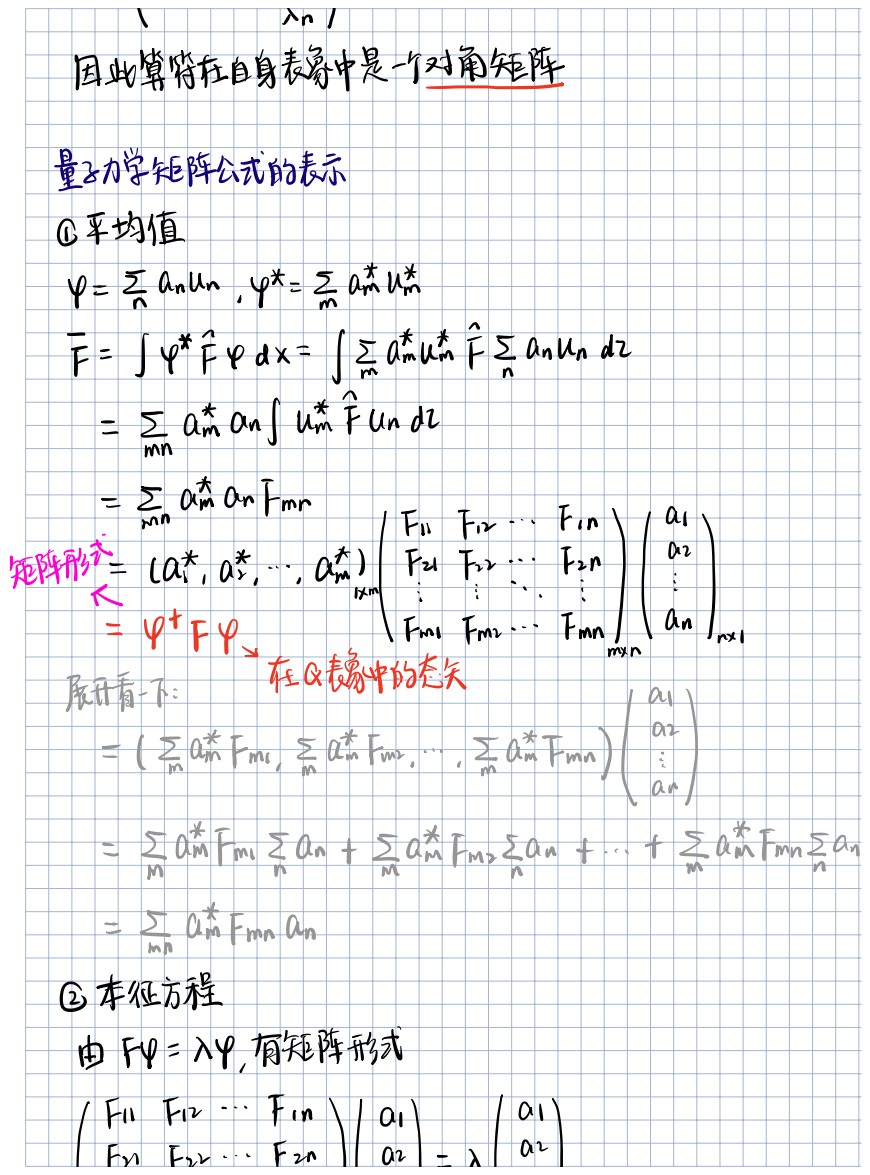 λn
因此算符在自身表象中是一个对角矩阵
量子力学矩阵公式的表示
① 平均值
ψ = ∑_n a_n u_n , ψ* = ∑_m a_m* u_m*
F̄ = ∫ ψ* F̂ ψ dx = ∫ ∑_m a_m* u_m* F̂ ∑_n a_n u_n dz
= ∑_mn a_m* a_n ∫ u_m* F̂ u_n dz
= ∑_mn a_m* a_n F_mn
矩阵形式 = (a_1*, a_2*, ⋯, a_m*)_1×m ( F11 F12 ⋯ F1n ; F21 F22 ⋯ F2n ; ⋮ ⋮ ⋱ ⋮ ; Fm1 Fm2 ⋯ Fmn )_m×n ( a1 ; a2 ; ⋮ ; an )_n×1
= ψ⁺ F ψ
在Q表象中的态矢
展开看一下:
= ( ∑_m a_m* F_m1, ∑_m a_m* F_m2, ⋯, ∑_m a_m* F_mn ) ( a1 ; a2 ; ⋮ ; an )
= ∑_m a_m* F_m1 ∑_n a_n + ∑_m a_m* F_m2 ∑_n a_n + ⋯ + ∑_m a_m* F_mn ∑_n a_n
= ∑_mn a_m* F_mn a_n
② 本征方程
由 Fψ = λψ, 有矩阵形式
( F11 F12 ⋯ F1n ) ( a1 ) ( a1 )
( F21 F22 ⋯ F2n ) ( a2 ) = λ ( a2 )